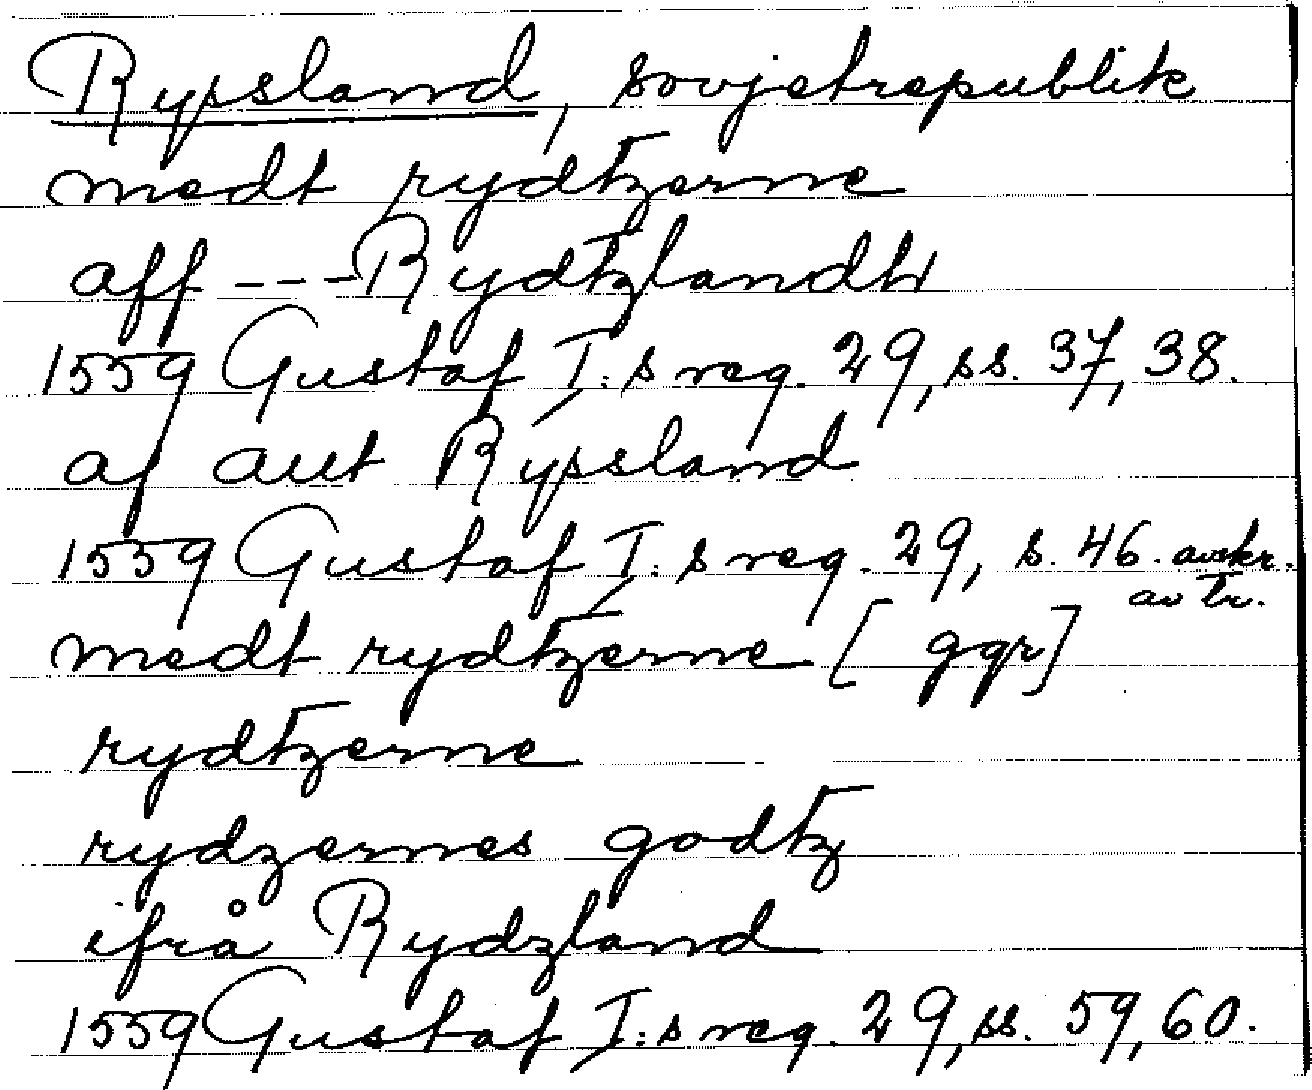 Ryssland, sovjetrepublik
medt rydtzerne
aff --- Rydtzlandh
1559 Gustaf I:s reg. 29, ss. 37, 38.
af allt Ryssland
1559 Gustaf I:s reg. 29, s. 46. avskr.
av tr.
medt rydtzerne [ ggr]
rydtzerne
rydzernes godtz
ifrå Rydzland
1559 Gustaf I:s reg. 29, ss. 59, 60.